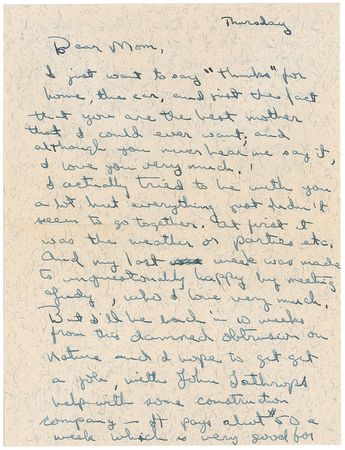 Thursday
Dear Mom,
I just want to say "thanks" for
home, the car, and just the fact
that you are the best mother
that I could ever want, and
although you never hear me say it,
I love you very much.
I actually tried to be with you
a bit but everything just didn't
seem to go together. At first it
was the weather or parties etc.
And my last week was made
so unquestionably happy by meeting
Judy, who I love very much.
But I'll be back in 10 weeks
from this damned obtrusion on
Nature and I hope to get get
a job, with John Lathrop's
help with some construction
company — It pays about $50 a
week which is very good for